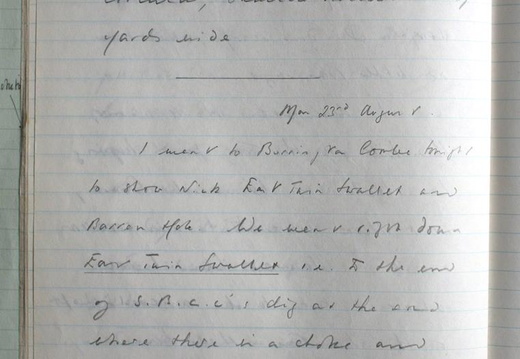 yards wide
Mon 23rd August.
I went to Burrington Combe tonight
to show Nick East Twin Swallet and
Barren Hole. We went right down
East Twin Swallet i.e. to the end
of S.B.C.C's dig at the end
where there is a choke and